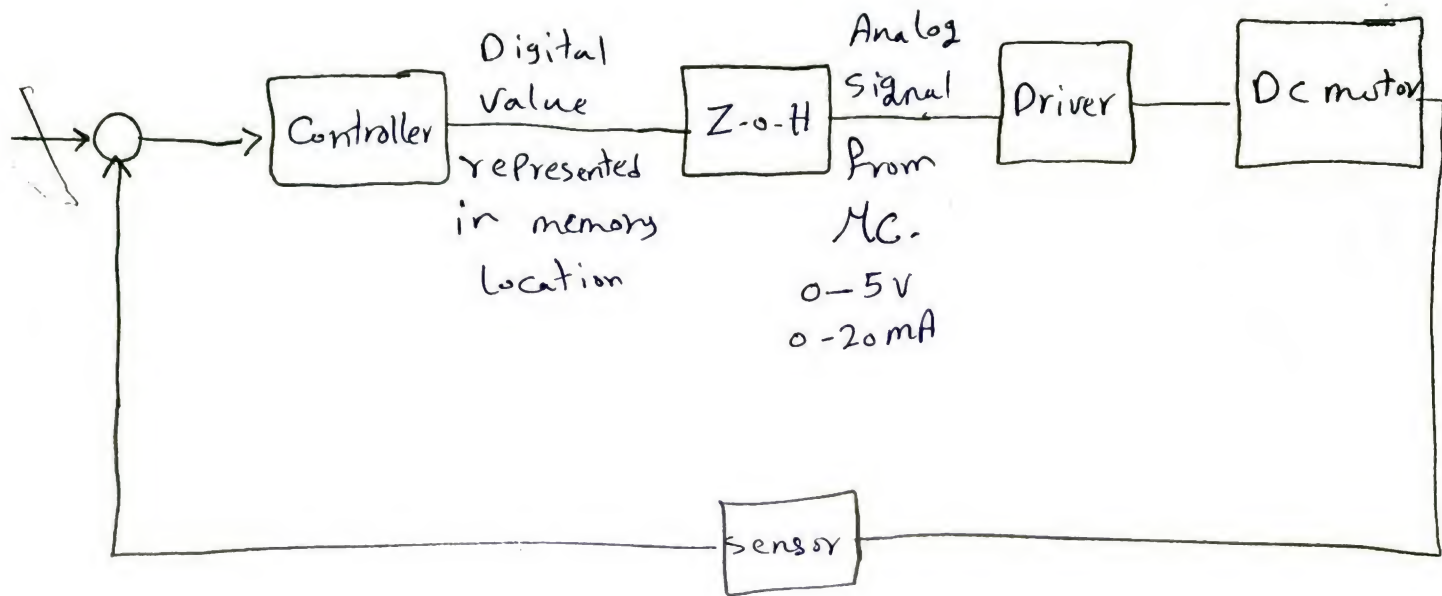 Controller
Digital
Value
represented
in memory
Location
Z-o-H
Analog
Signal
From
MC.
0-5V
0-20mA
Driver
Dc motor
Sensor